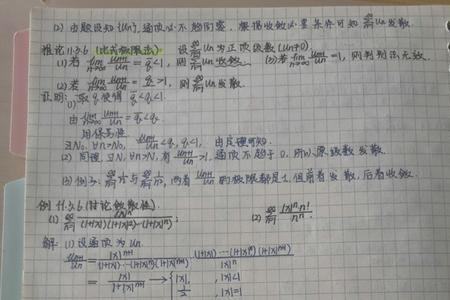 (2) 由题设知{Un}递增,必不趋向零,根据收敛必要条件可知 ∑Un 发散.
推论11.3.6 (比式极限法) 设∑Un为正项级数(Un≠0)
(1)若 lim(n→∞) Un+1/Un = q<1, 则∑Un收敛. (3)若 lim(n→∞) Un+1/Un =1, 则判别法无效.
(2)若 lim(n→∞) Un+1/Un = q>1, 则∑Un发散.
证明: (1) 取q₁使得 q<q₁<1.
由 lim(n→∞) Un+1/Un = q<q₁
用保号性
∃N₀, ∀n>N₀, Un+1/Un <q₁, q₁<1, 由定理可知.
(2) 同理, ∃N, ∀n>N, 有 Un+1/Un >1, 通项不趋于0, 所以原级数发散.
(3) 例子: ∑1/n 与 ∑1/n², 两者 Un+1/Un 的极限都是1, 但前者发散, 后者收敛.
例 11.3.6 (讨论敛散性)
(1) ∑ |x|ⁿ/((1+|x|)(1+|x|²)···(1+|x|ⁿ)); (2) ∑ |x|ⁿ·n!/nⁿ
解: (1) 设通项为 Un.
Un+1/Un = |x|ⁿ⁺¹/((1+|x|)···(1+|x|ⁿ)(1+|x|ⁿ⁺¹)) · (1+|x|)···(1+|x|ⁿ)/|x|ⁿ
= |x|/(1+|x|ⁿ⁺¹) → { |x|, |x|<1
1/2, |x|=1